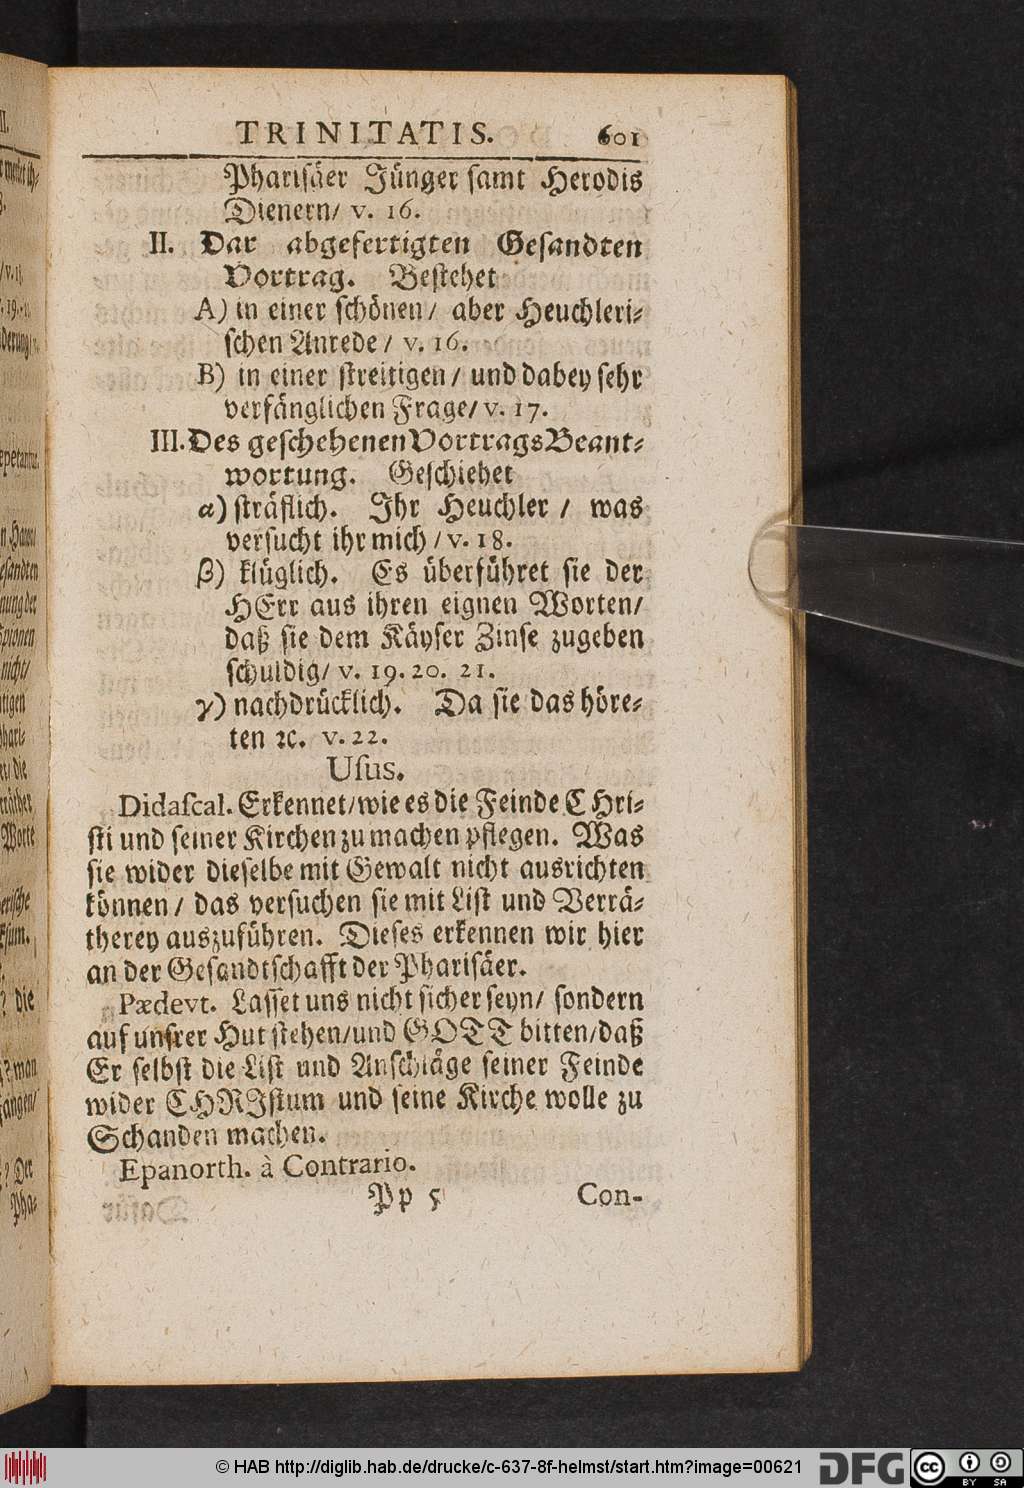 TRINITATIS. 601
Pharisäer Jünger samt Herodis
Dienern/ v. 16.
II. Dar abgefertigten Gesandten
Vortrag. Bestehet
A) in einer schönen/ aber Heuchleri-
schen Anrede/ v. 16.
B) in einer streitigen/ und dabey sehr
verfänglichen Frage/ v. 17.
III. Des geschehenen Vortrags Beant-
wortung. Geschiehet
α) sträflich. Ihr Heuchler / was
versucht ihr mich / v. 18.
β) klüglich. Es überführet sie der
HErr aus ihren eignen Worten/
daß sie dem Käyser Zinse zugeben
schuldig/ v. 19. 20. 21.
γ) nachdrücklich. Da sie das höre-
ten ꝛc. v. 22.
Usus.
Didascal. Erkennet/ wie es die Feinde CHri-
sti und seiner Kirchen zu machen pflegen. Was
sie wider dieselbe mit Gewalt nicht ausrichten
können/ das versuchen sie mit List und Verrä-
therey auszuführen. Dieses erkennen wir hier
an der Gesandtschafft der Pharisäer.
Pædevt. Lasset uns nicht sicher seyn/ sondern
auf unsrer Hut stehen/ und GOTT bitten/ daß
Er selbst die List und Anschläge seiner Feinde
wider CHRIstum und seine Kirche wolle zu
Schanden machen.
Epanorth. à Contrario.
Pp 5 Con-
© HAB http://diglib.hab.de/drucke/c-637-8f-helmst/start.htm?image=00621 DFG cc BY SA